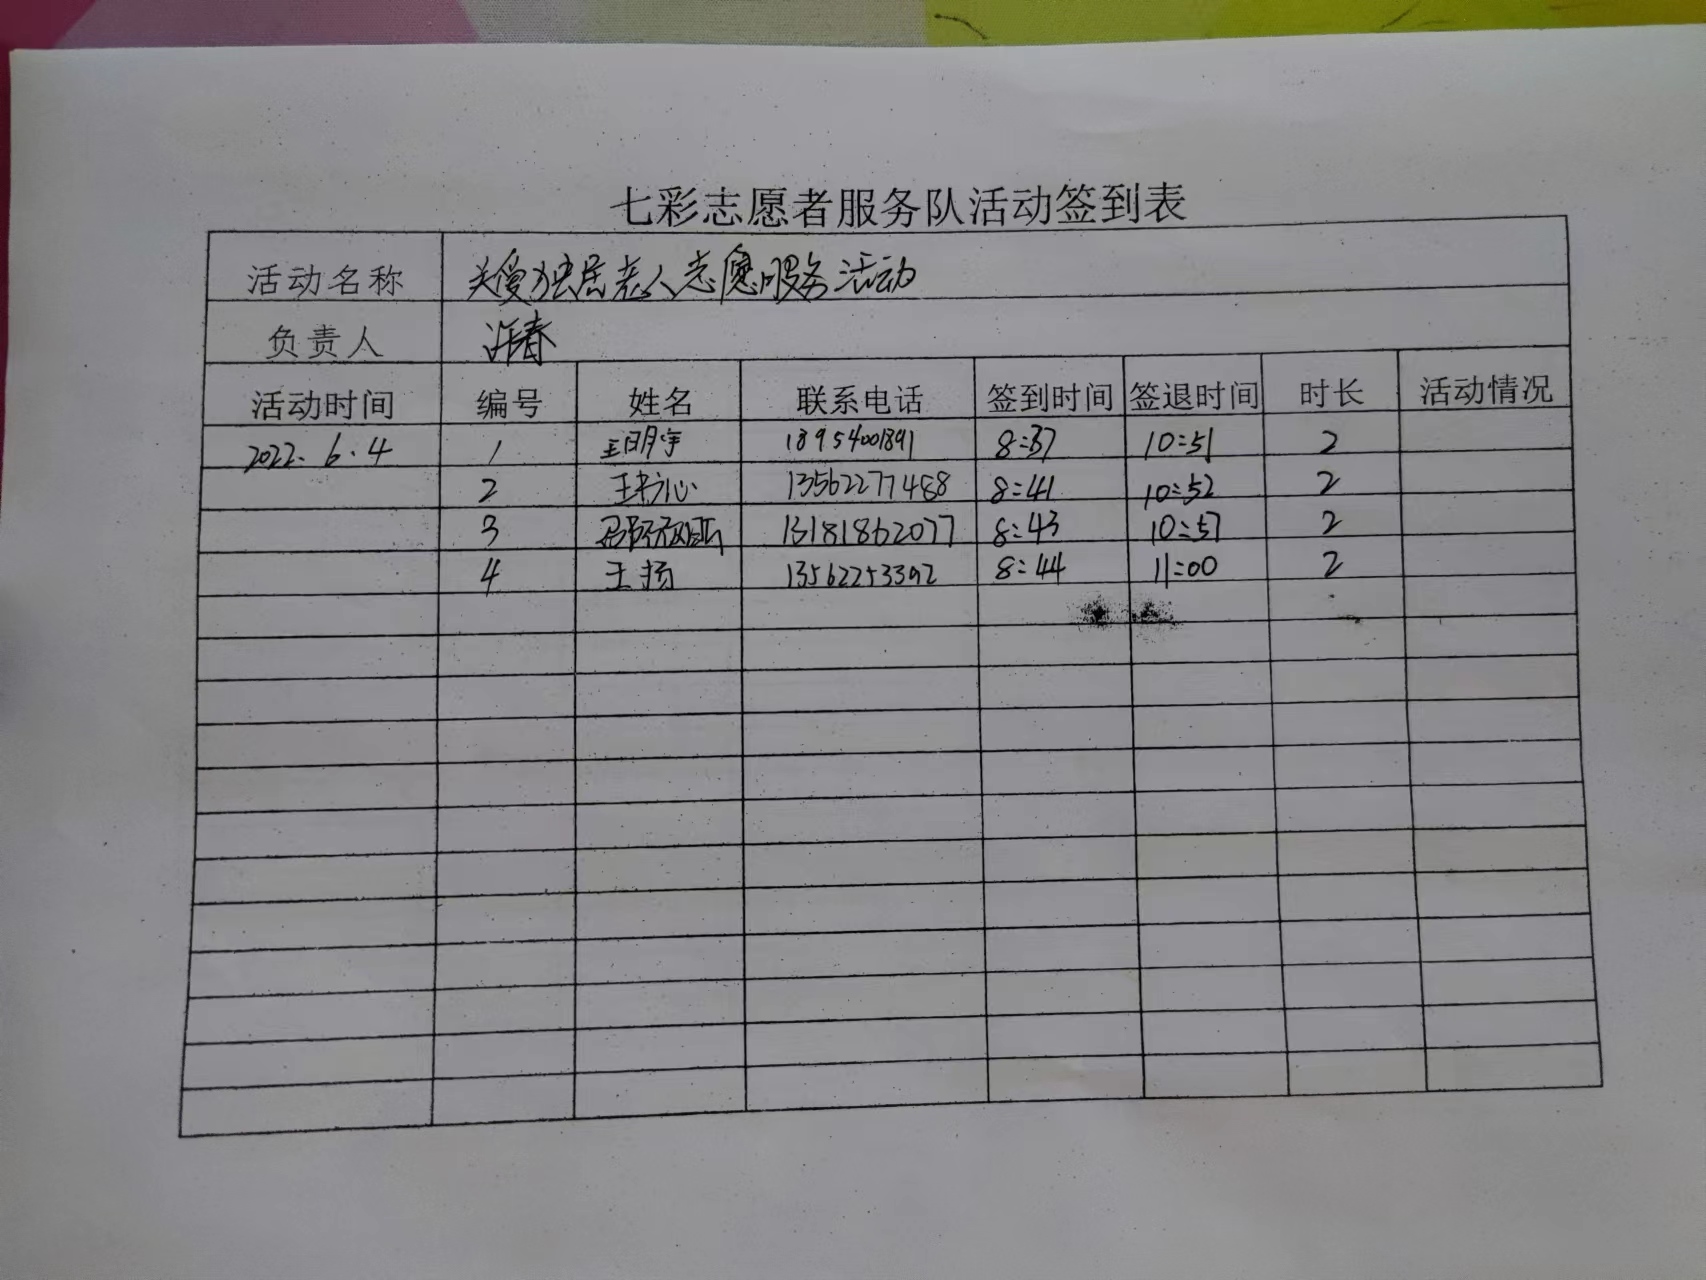 七彩志愿者服务队活动签到表
活动名称 关爱独居老人志愿服务活动
负责人 许春
活动时间 编号 姓名 联系电话 签到时间 签退时间 时长 活动情况
2022.6.4 1 王明宇 18954001891 8:37 10:51 2
2 王书心 13562277488 8:41 10:52 2
3 13181862077 8:43 10:57 2
4 王扬 13562253392 8:44 11:00 2